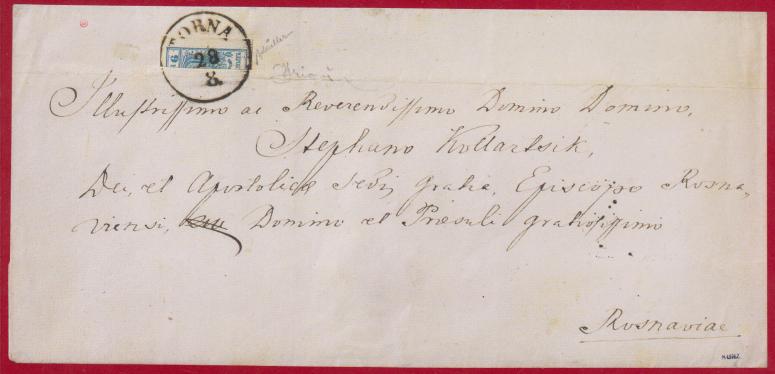 TORNA
28
8.
Illustrissimo ac Reverendissimo Domino Domino,
Stephano Kollartsik,
Dei, et Apostolicæ Sedis gratia, Episcopo Rosna,
viensi, Domino et Præsuli gratiosissimo
Rosnaviae